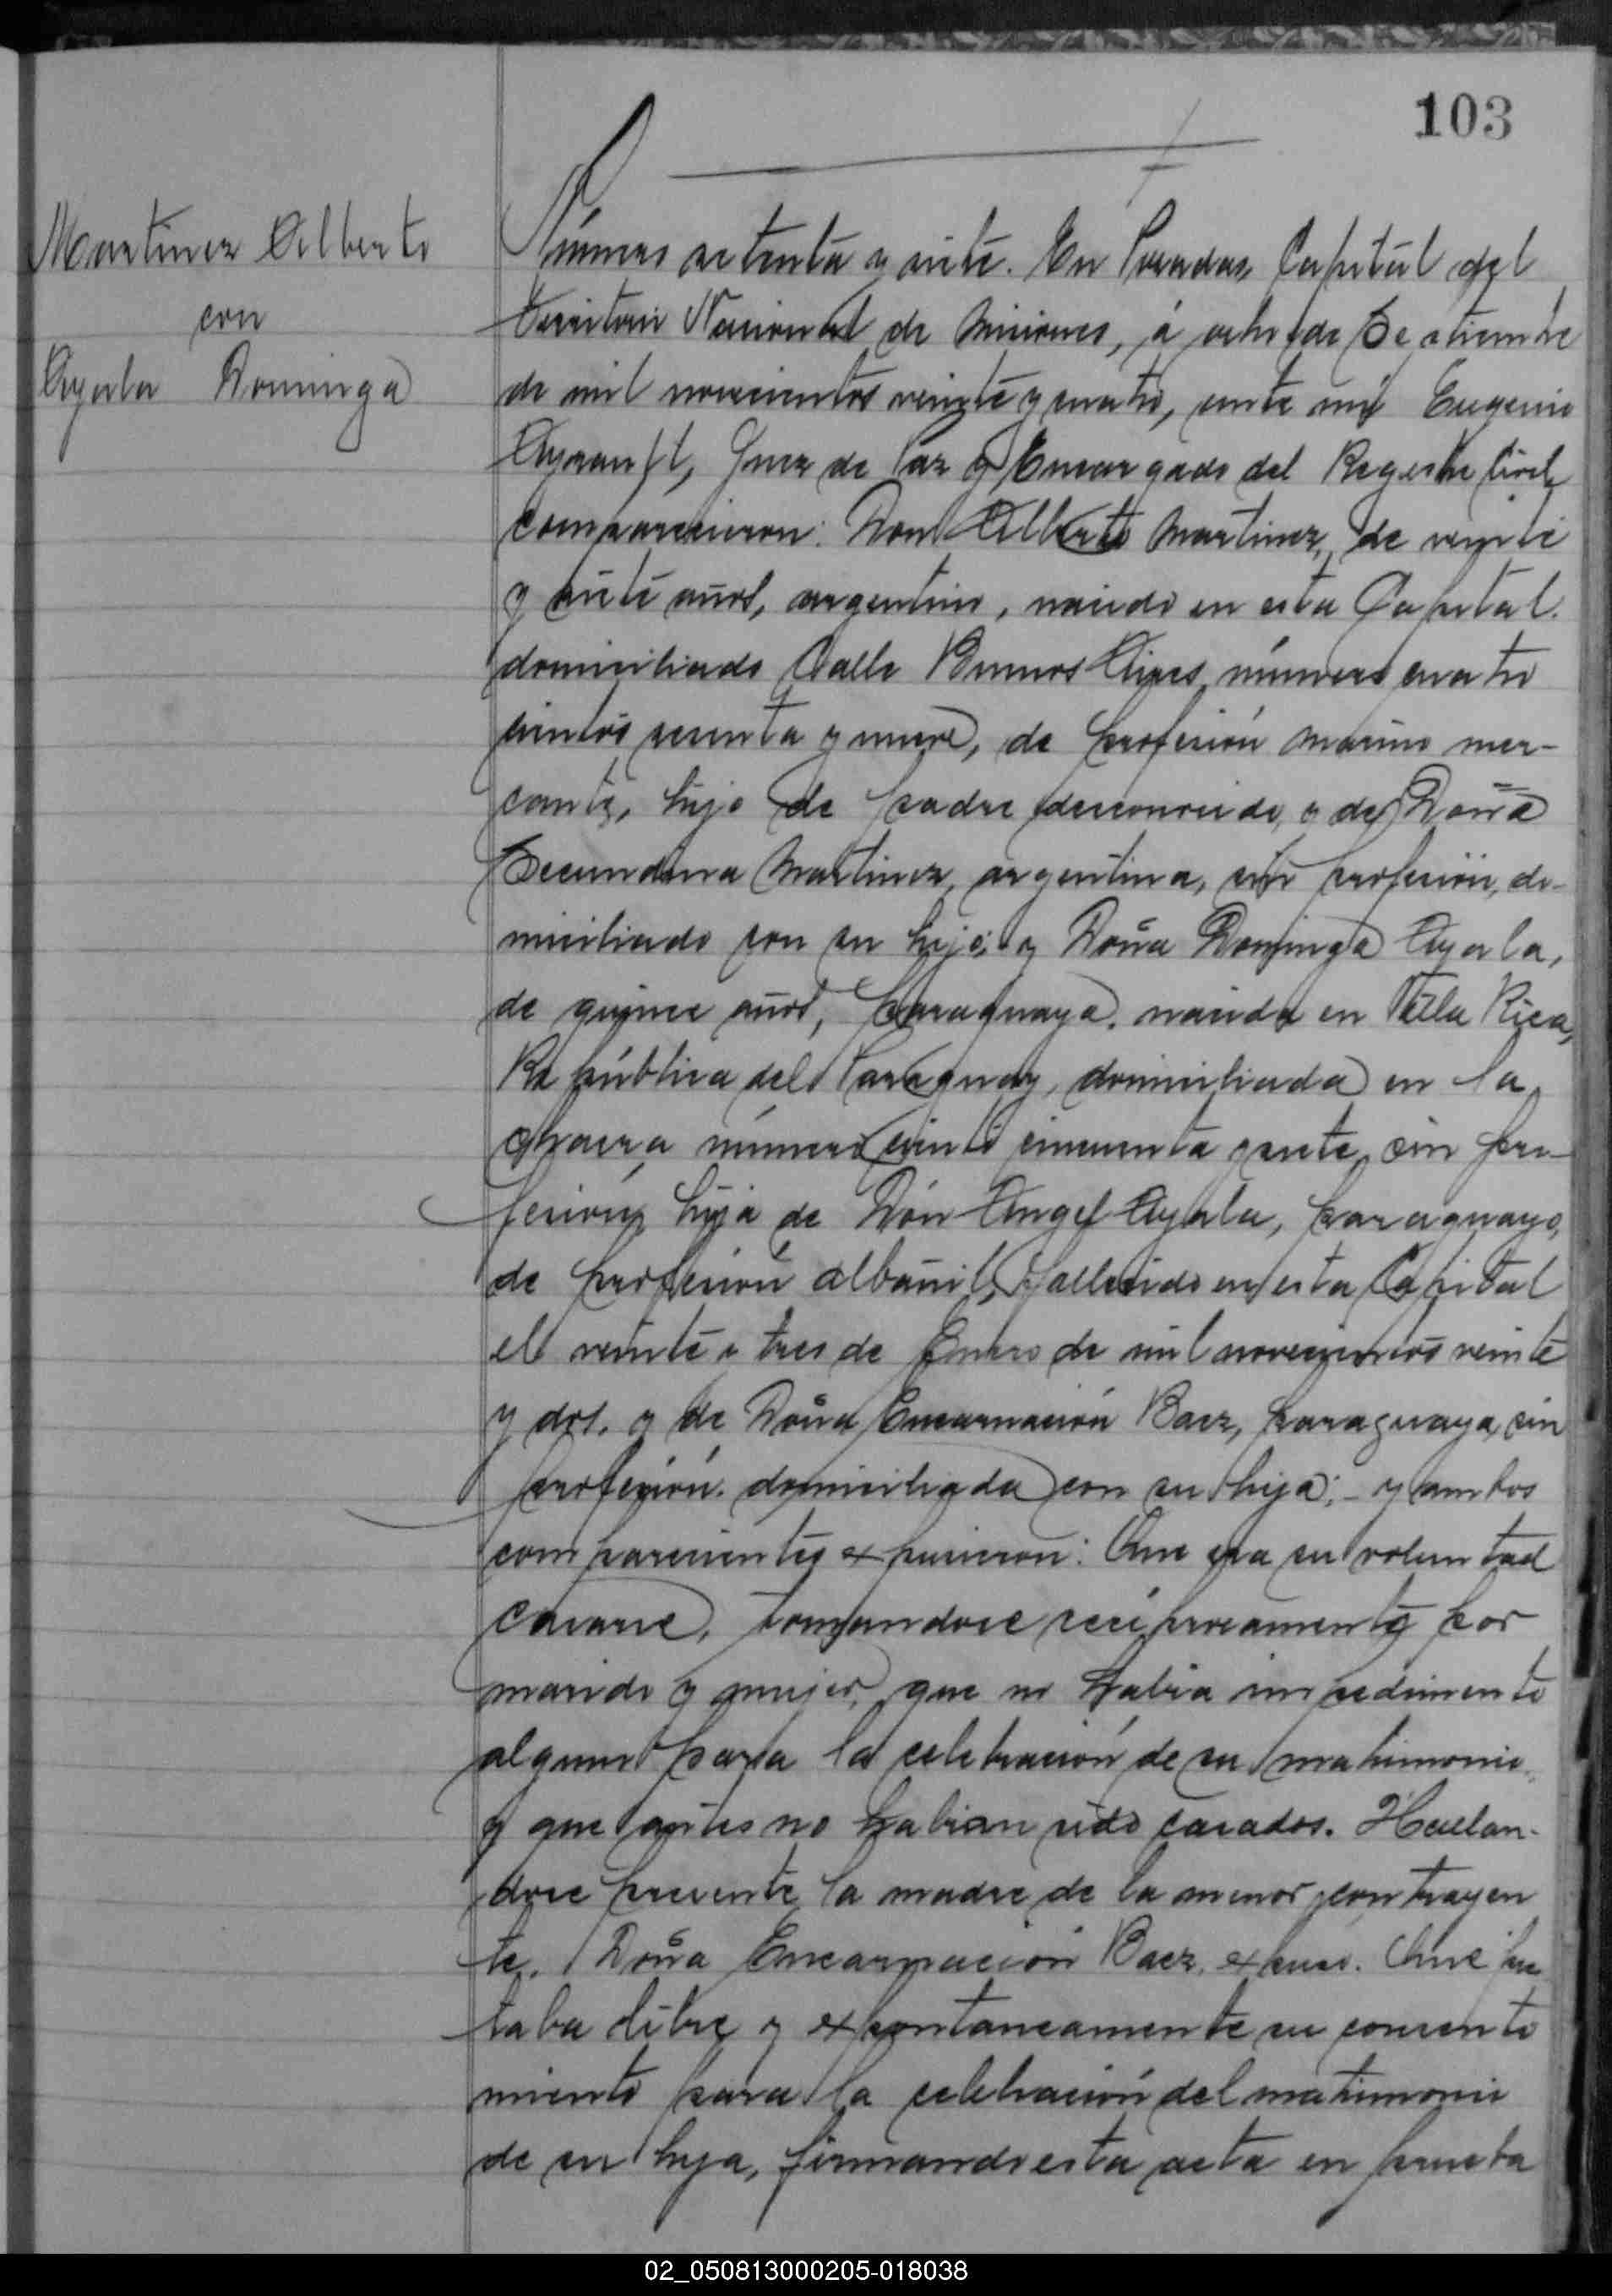 103
Martinez Alberto
con
Ayala Dominga
Número setenta y siete. En Posadas, Capital del
Territorio Nacional de Misiones, á ocho de Setiembre
de mil novecientos veinte y cuatro, ante mí Eugenio
Juez de Paz y Encargado del Registro Civil,
comparecieron: Don Alberto Martinez, de veinte
y siete años, argentino, nacido en esta Capital.
domiciliado Calle Buenos Aires número cuatro
cientos sesenta y nueve, de profesión marino mer-
cante, hijo de padre desconocido, y de Doña
Secundina Martinez, argentina, sin profesión, do-
miciliado con su hijo; y Doña Dominga Ayala,
de quince años, paraguaya, nacida en Villa Rica,
República del Paraguay, domiciliada en la
chacra número ciento cincuenta y siete, sin pro-
fesión, hija de Dón Angel Ayala, paraguayo,
de profesión albañil, fallecido en esta Capital
el veinte y tres de Enero de mil novecientos veinte
y dos, y de Doña Encarnación Baez, paraguaya, sin
profesión, domiciliada con su hija; - y ambos
comparecientes expusieron: Que era su voluntad
casarse, tomandose recíprocamente por
marido y mujer, que no habia impedimento
alguno para la celebración de su matrimonio,
y que antes no habian sido casados. Hallan-
dose presente la madre de la menor contrayen
te, Doña Encarnación Baez, expuso: Que pres
taba libre y expontaneamente su consenti
miento para la celebración del matrimonio
de su hija, firmando esta acta en prueba
02_050813000205-018038